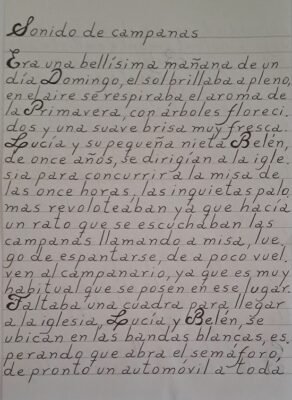 Sonido de campanas
Era una bellísima mañana de un
día Domingo, el sol brillaba a pleno,
en el aire se respiraba el aroma de
la Primavera, con árboles floreci.
dos y una suave brisa muy fresca.
Lucía y su pequeña nieta Belén,
de once años, se dirigían a la igle.
sia para concurrir a la misa de
las once horas, las inquietas palo.
mas revoloteaban ya que hacía
un rato que se escuchaban las
campanas llamando a misa, lue.
go de espantarse, de a poco vuel.
ven al campanario, ya que es muy
habitual que se posen en ese lugar.
Faltaba una cuadra para llegar
a la iglesia, Lucía y Belén, se
ubican en las bandas blancas, es.
perando que abra el semáforo,
de pronto un automóvil a toda